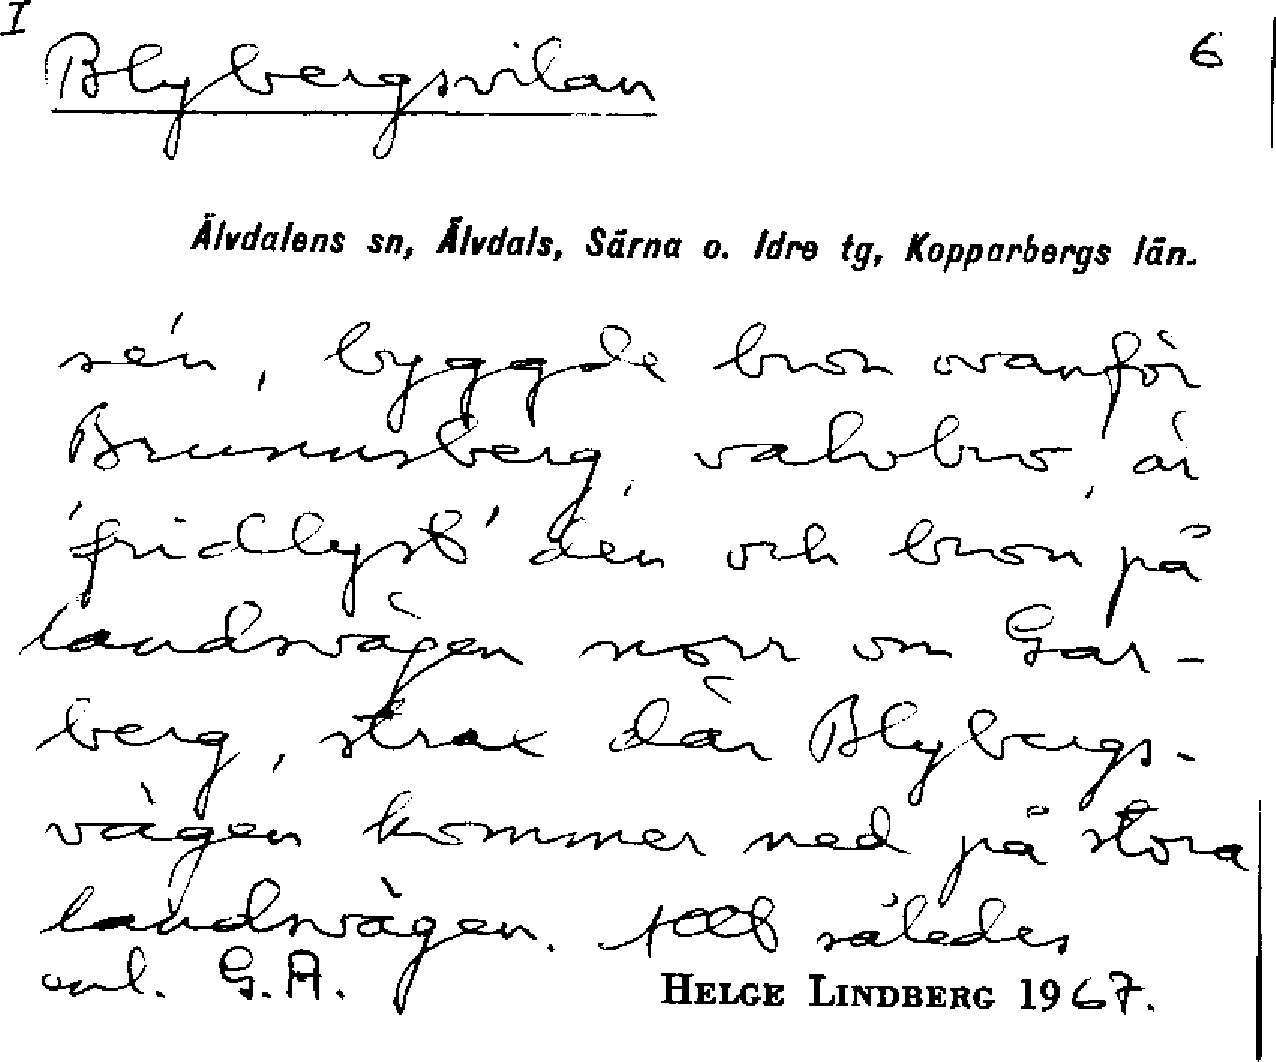 I
Blybergsvilan 6
Älvdalens sn, Älvdals, Särna o. Idre tg, Kopparbergs län.
sén, byggde bron ovanför
Brunnsberg, valvbro, är
'fridlyst' den och bron på
landsvägen norr om Gar-
berg, strax där Blybergs-
vägen kommer ned på stora
landsvägen. Allt således
enl. G.A. HELGE LINDBERG 1967.